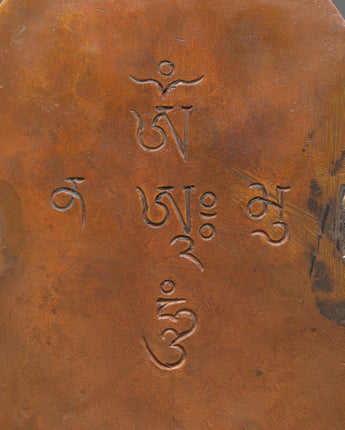 ཨོཾ
ན ཨཱཿ སུ
ཧཱུྃ